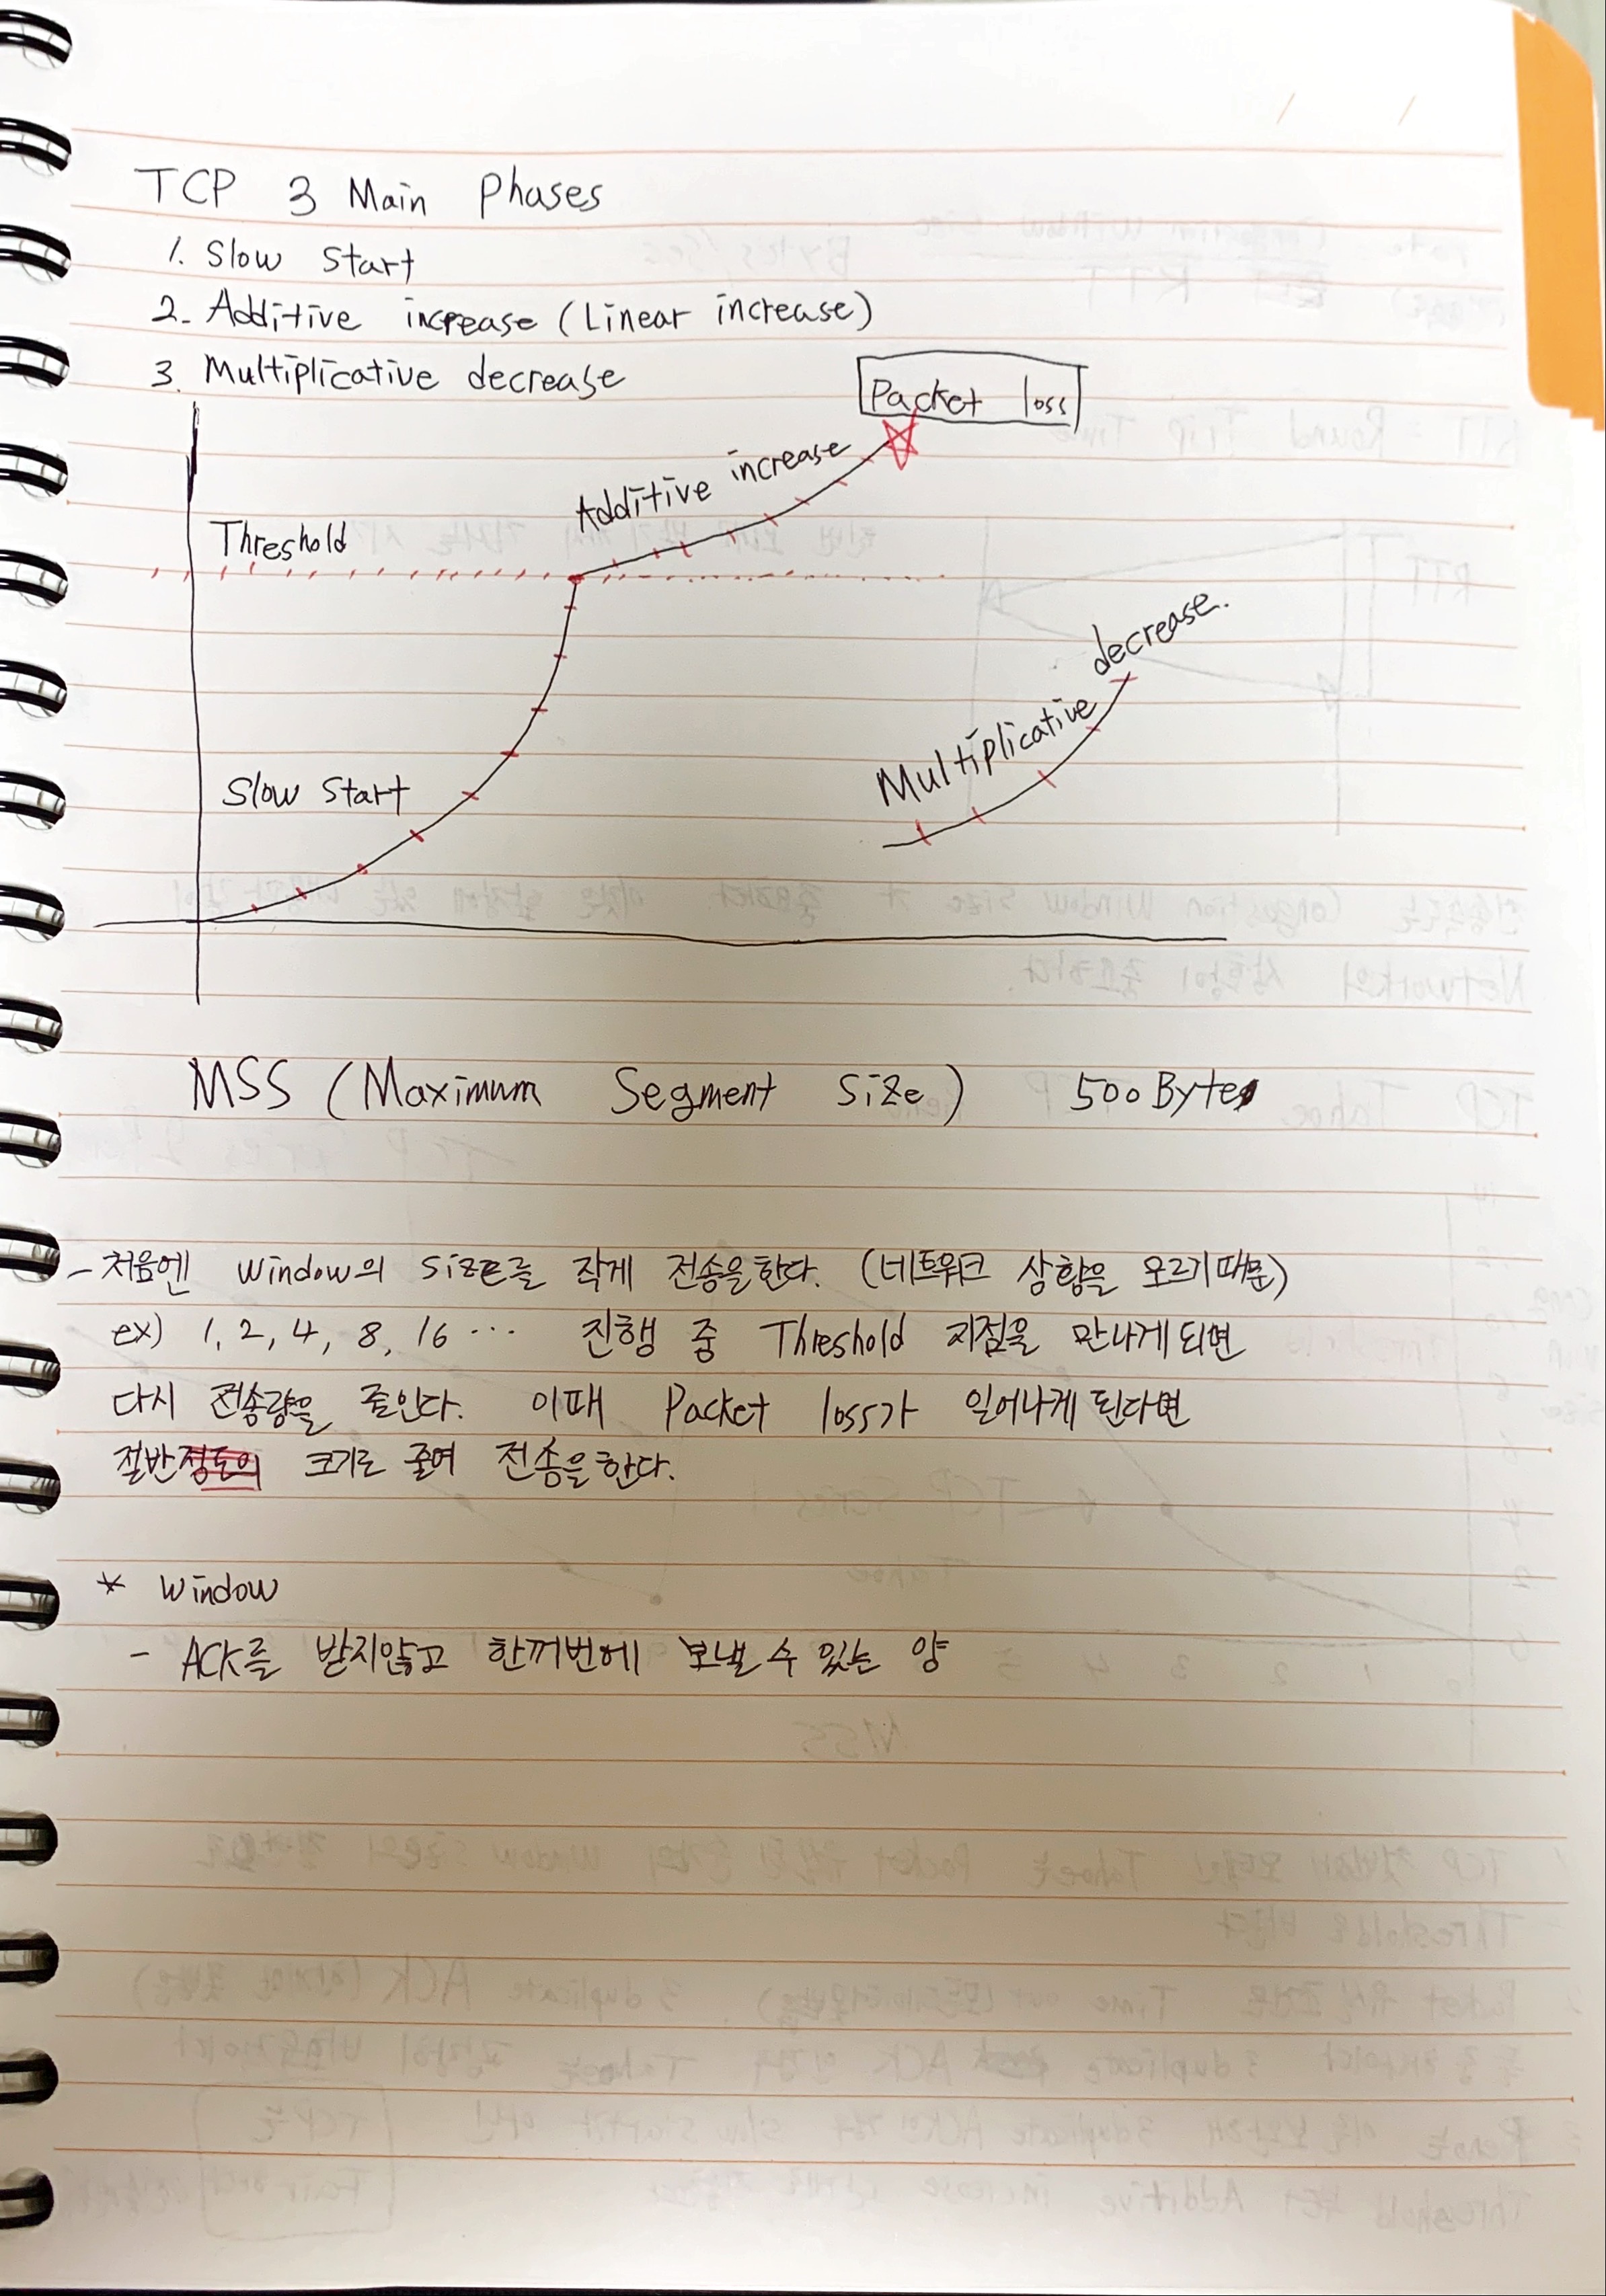 TCP 3 Main Phases
1. Slow Start
2. Additive increase (Linear increase)
3. Multiplicative decrease
Packet loss
Additive increase
Threshold
Multiplicative decrease.
Slow Start
MSS (Maximum Segment Size) 500 Bytes
- 처음엔 Window의 Size를 작게 전송을한다. (네트워크 상황을 모르기때문)
ex) 1, 2, 4, 8, 16 ... 진행 중 Threshold 지점을 만나게되면
다시 전송량을 줄인다. 이때 Packet loss가 일어나게 된다면
절반정도의 크기로 줄여 전송을한다.
* Window
- ACK를 받지않고 한꺼번에 보낼 수 있는 양